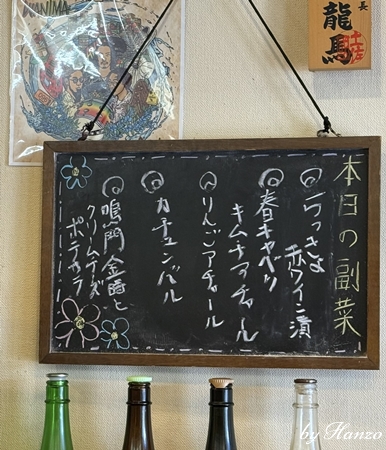 WANIMA
長
龍馬
土佐
本日の副菜
らっきょ
赤ワイン漬
春キャベツ
キムチアチャール
りんごアチャール
カチュンバル
鳴門金時と
クリームチーズ
ポテサラ
by Hanzo